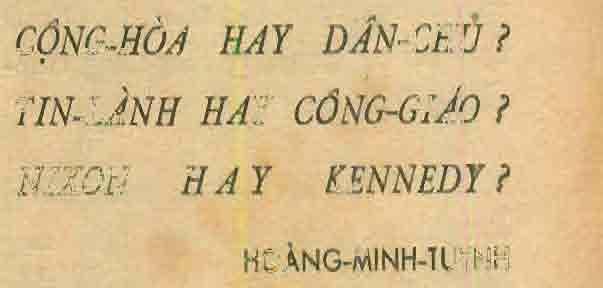 CỘNG-HÒA HAY DÂN-CHỦ ?
TIN-LÀNH HAY CÔNG-GIÁO ?
NIXON HAY KENNEDY ?
HOÀNG-MINH-TUYNH